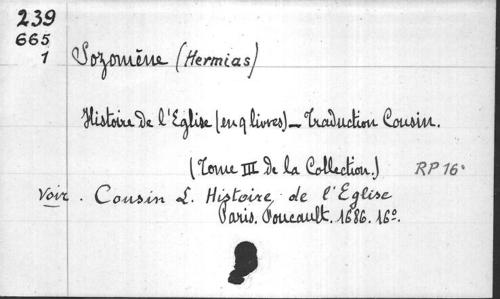 239
665
1
Sozomène (Hermias)
Histoire de l'Eglise (en 9 livres) _ Traduction Cousin.
(Tome III de la Collection.) RP 16°
Voir . Cousin L. Histoire de l'Eglise
Paris. Foucault. 1686. 16°.